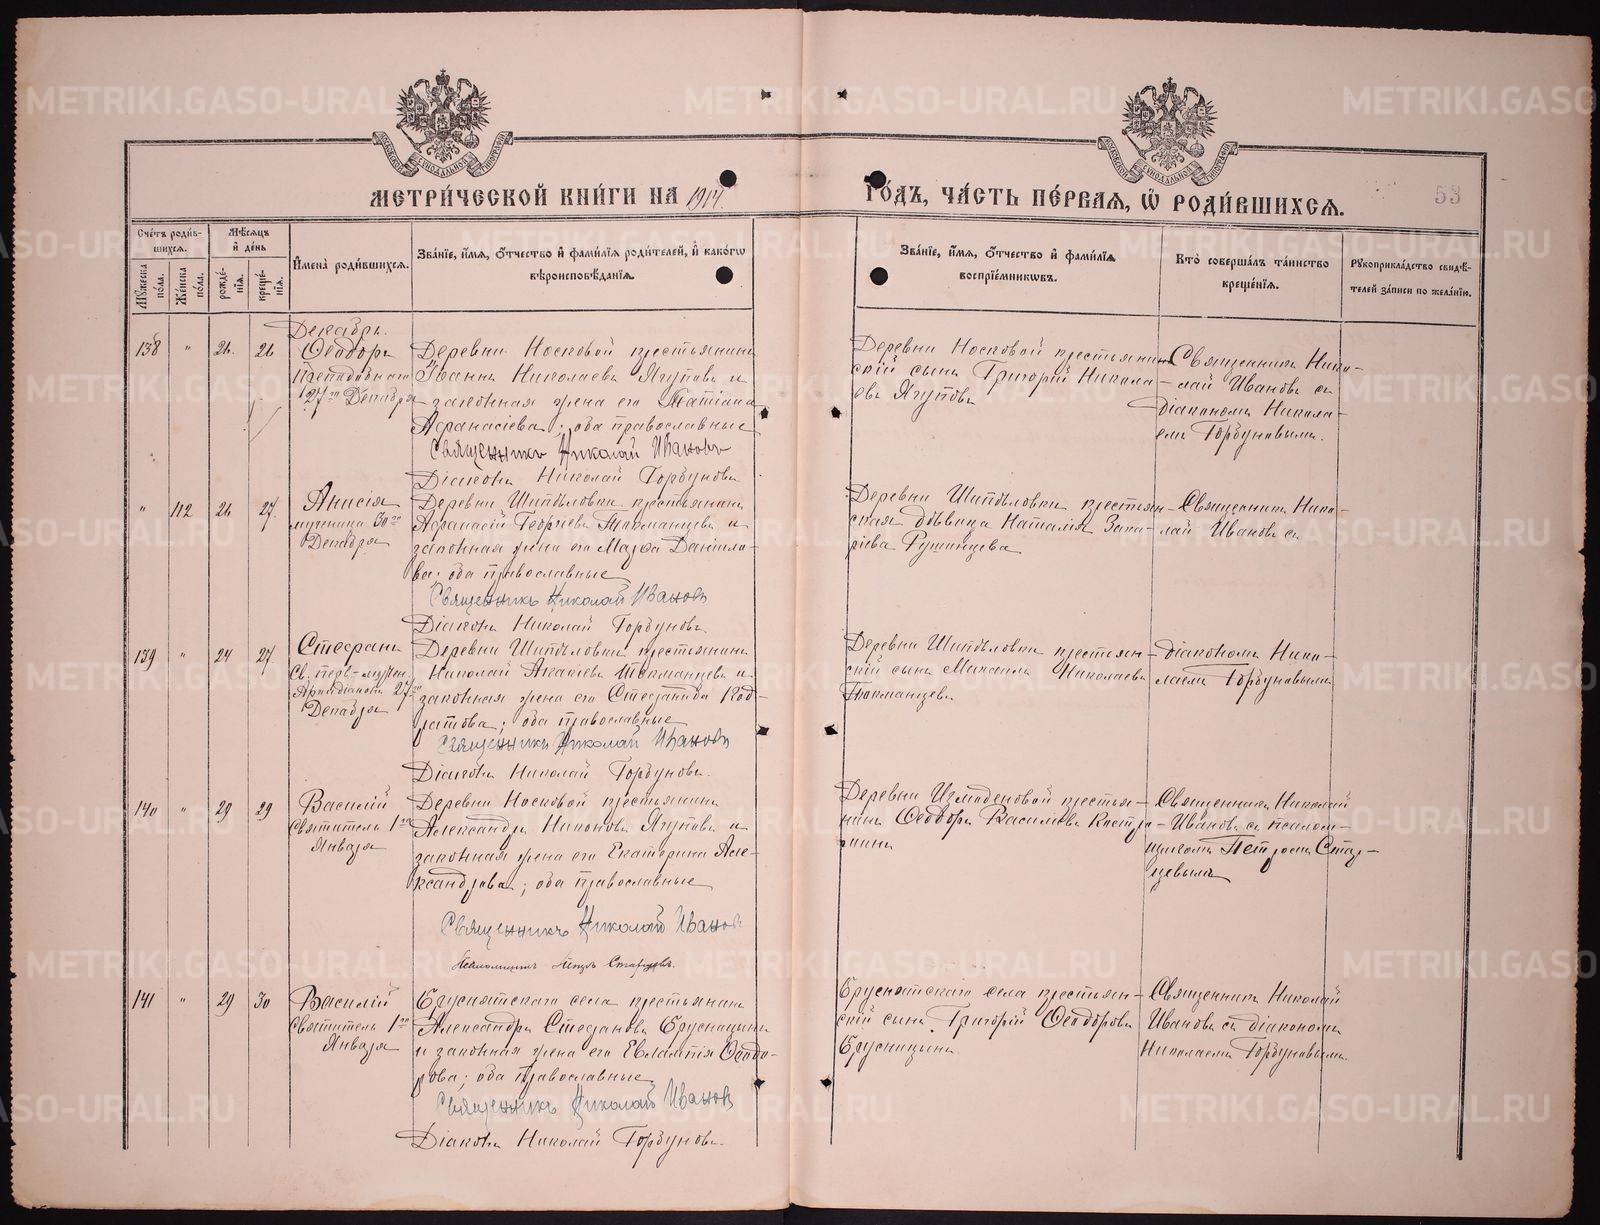 МЕТРИ́ЧЕСКОЙ КНИ́ГИ НА 1914
ГО́ДЪ, ЧА́СТЬ ПЕ́РВАѦ, Ѡ҆ РОДИ́ВШИХСѦ.
53
Сче́тъ роди́в-
шихсѧ.
Мѣ́сѧцъ
и҆ де́нь
Мꙋ́жеска по́ла.
Же́нска по́ла.
рожде́-
нїѧ.
креще́-
нїѧ.
И҆мена̀ роди́вшихсѧ.
Зва́нїе, и҆́мѧ, ѻ҆́тчество и҆ фами́лїѧ роди́телей, и҆ како́гѡ
вѣроисповѣ́данїѧ.
Зва́нїе, и҆́мѧ, ѻ҆́тчество и҆ фами́лїѧ
воспрїе́мникѡвъ.
Кто̀ соверша́лъ та́инство
креще́нїѧ.
Рꙋкоприкла́дство свидѣ́-
телей за́писи по жела́нїю.
Декабрь.
138 " 26. 26
Ѳеодоръ
Преподобнаго
27го Декабря
Деревни Носковой крестьянинъ
Іоаннъ Николаевъ Ягуповъ и
законная жена его Татіана
Афанасіева; оба православные
Священникъ Николай Ивановъ
Діаконъ Николай Горбуновъ
Деревни Носковой крестьян-
скій сынъ Григорій Никола-
евъ Ягуповъ
Священникъ Нико-
лай Ивановъ съ
діакономъ Никола-
емъ Горбуновымъ.
" 112 26 27.
Анисія
мученица 30го
Декабря
Деревни Шипѣловки крестьянинъ
Афанасій Георгіевъ Токманцевъ и
законная жена его Марѳа Даніило-
ва; оба православные
Священникъ Николай Ивановъ
Діаконъ Николай Горбуновъ.
Деревни Шипѣловки крестьян-
ская дѣвица Наталія Заха-
ріева
Священникъ Нико-
лай Ивановъ съ
139 " 24 27
Стефанъ
Св. перв-мучен.
Архидіаконъ 27го
Декабря
Деревни Шипѣловки крестьянинъ
Николай Акакіевъ Токманцевъ и
законная жена его Стефанида Код-
ратова; оба православные
Священникъ Николай Ивановъ
Діаконъ Николай Горбуновъ.
Деревни Шипѣловки крестьян-
скій сынъ Максимъ Николаевъ
Токманцевъ.
діакономъ Нико-
лаемъ Горбуновымъ
140 " 29 29
Василій
Святитель 1го
Января
Деревни Носковой крестьянинъ
Александръ Никоновъ Ягуповъ и
законная жена его Екатерина Але-
ксандрова; оба православные
Священникъ Николай Ивановъ
Псаломщикъ Петръ Старцевъ.
Деревни Измоденовой крестья-
нинъ Ѳеодоръ Василіевъ Костр-
минъ
Священникъ Николай
Ивановъ съ псалом-
щикомъ Петромъ Стар-
цевымъ
141 " 29 30
Василій
Святитель 1го
Января
Бруснятскаго села крестьянинъ
Александръ Стефановъ Брусницынъ
и законная жена его Евлампія Ѳеодо-
рова; оба православные.
Священникъ Николай Ивановъ
Діаконъ Николай Горбуновъ.
Бруснятскаго села крестьян-
скій сынъ Григорій Ѳеодоровъ
Брусницынъ.
Священникъ Николай
Ивановъ съ діакономъ
Николаемъ Горбуновымъ.
METRIKI.GASO-URAL.RU